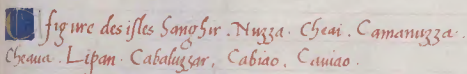 figure des isles Sanghir . Nuzza . Cheai . Camanuzza .
Cheaua . Lipan . Cabaluzzar . Cabiao . Cauiao .